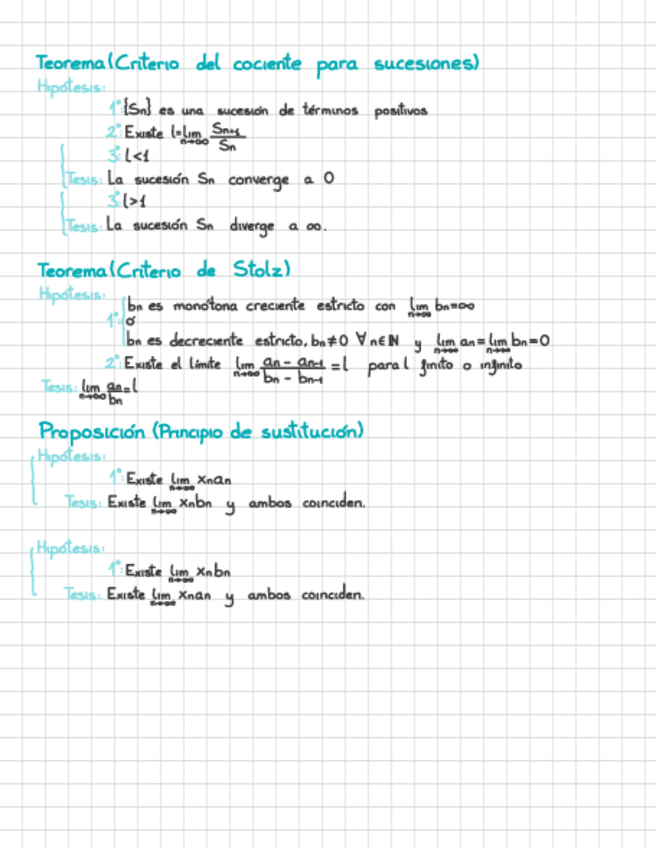 Teorema (Criterio del cociente para sucesiones)
Hipótesis:
1º: {Sn} es una sucesión de términos positivos
2º: Existe l=lim n→∞ Sn+1/Sn
3º: l<1
Tesis: La sucesión Sn converge a 0
3º: l>1
Tesis: La sucesión Sn diverge a ∞.
Teorema (Criterio de Stolz)
Hipótesis:
1º: bn es monótona creciente estricto con lim n→∞ bn=∞
ó
bn es decreciente estricto, bn≠0 ∀n∈ℕ y lim n→∞ an = lim n→∞ bn = 0
2º: Existe el límite lim n→∞ (an - an-1)/(bn - bn-1) = l para l finito o infinito
Tesis: lim n→∞ an/bn = l
Proposición (Principio de sustitución)
Hipótesis:
1º: Existe lim n→∞ xnan
Tesis: Existe lim n→∞ xnbn y ambos coinciden.
Hipótesis:
1º: Existe lim n→∞ xnbn
Tesis: Existe lim n→∞ xnan y ambos coinciden.